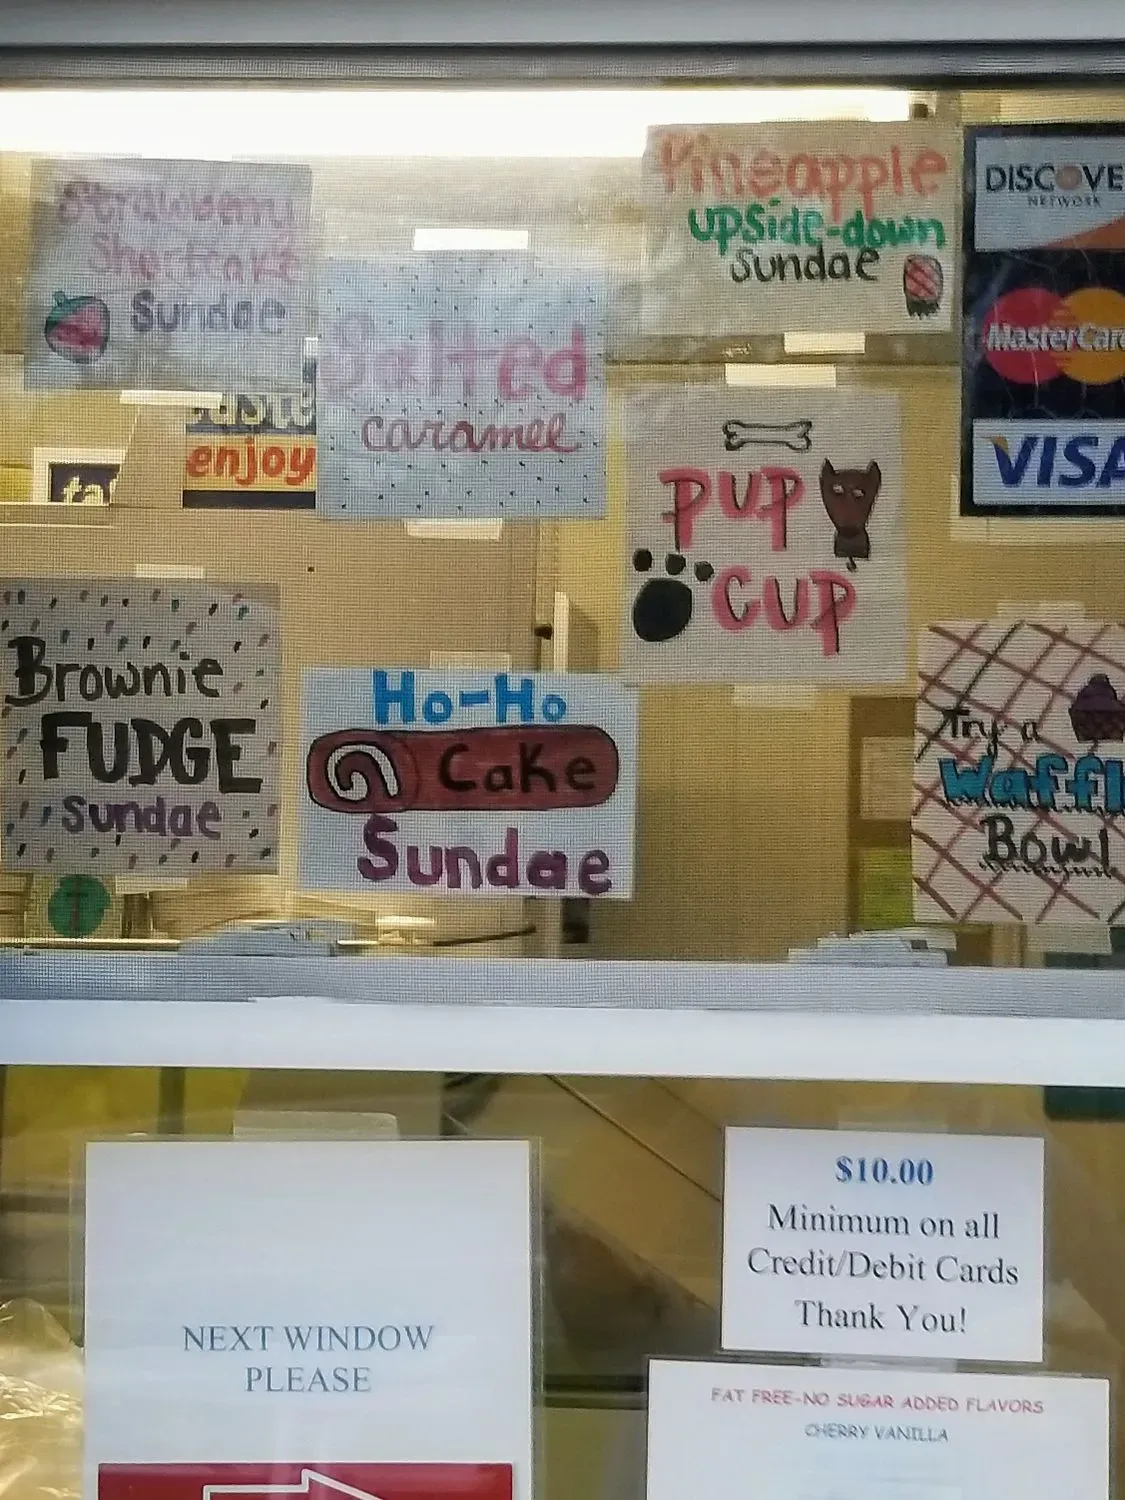 Strawberry
Shortcake
Sundae
Salted
caramel
Pineapple
upside-down
Sundae
DISCOVE
NETWORK
MasterCar
VISA
enjoy
PUP
CUP
Brownie
FUDGE
Sundae
Ho-Ho
Cake
Sundae
Try a
Waffl
Bowl
NEXT WINDOW
PLEASE
$10.00
Minimum on all
Credit/Debit Cards
Thank You!
FAT FREE-NO SUGAR ADDED FLAVORS
CHERRY VANILLA